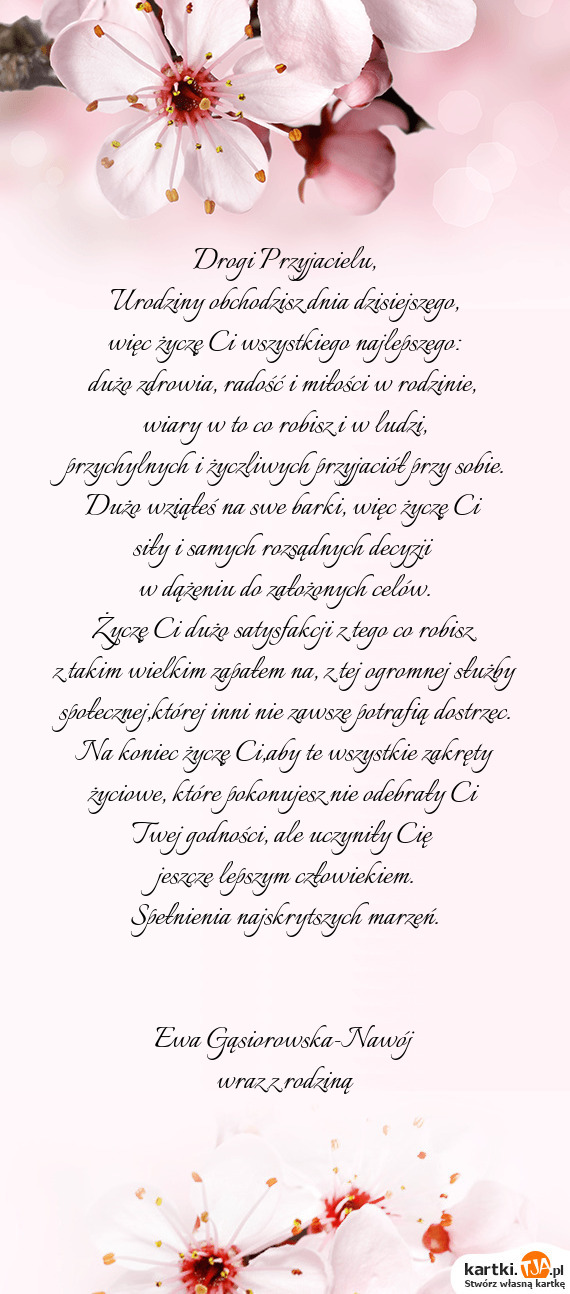 Drogi Przyjacielu,
Urodziny obchodzisz dnia dzisiejszego,
więc życzę Ci wszystkiego najlepszego:
dużo zdrowia, radość i miłości w rodzinie,
wiary w to co robisz i w ludzi,
przychylnych i życzliwych przyjaciół przy sobie.
Dużo wziąłeś na swe barki, więc życzę Ci
siły i samych rozsądnych decyzji
w dążeniu do założonych celów.
Życzę Ci dużo satysfakcji z tego co robisz
z takim wielkim zapałem na, z tej ogromnej służby
społecznej,której inni nie zawsze potrafią dostrzec.
Na koniec życzę Ci,aby te wszystkie zakręty
życiowe, które pokonujesz nie odebrały Ci
Twej godności, ale uczyniły Cię
jeszcze lepszym człowiekiem.
Spełnienia najskrytszych marzeń.
Ewa Gąsiorowska-Nawój
wraz z rodziną
kartki.TJA.pl
Stwórz własną kartkę